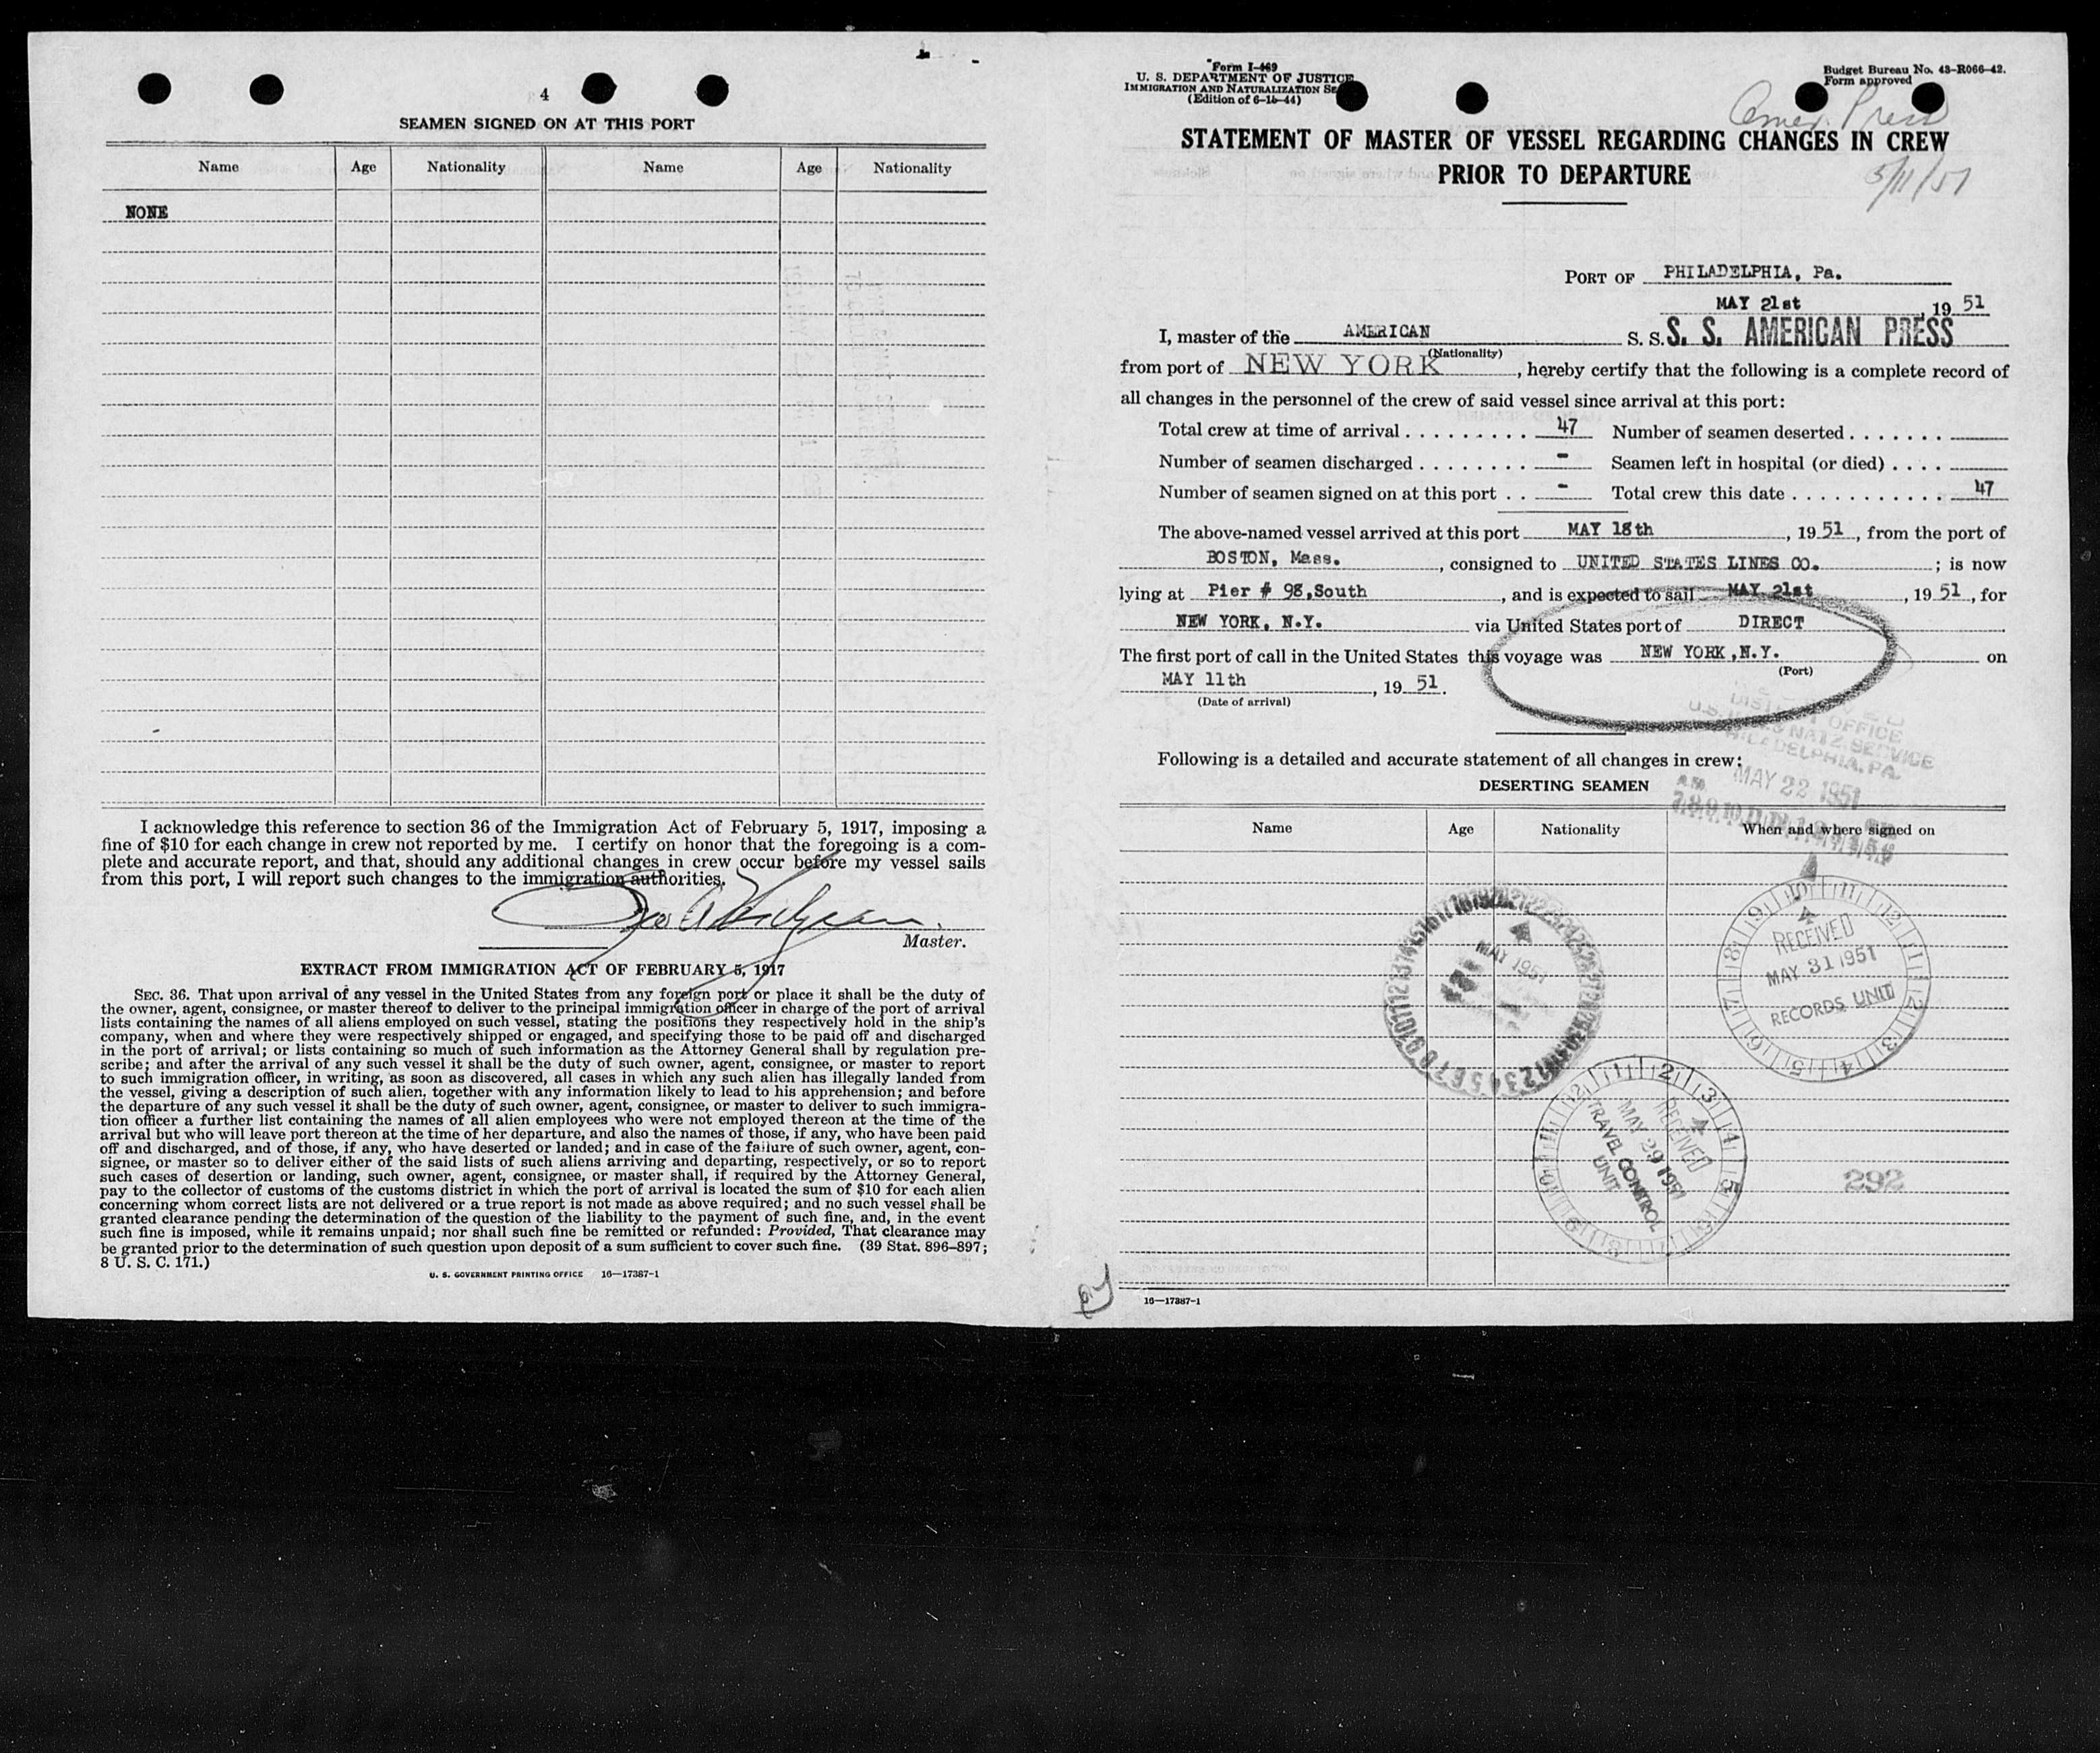 4
SEAMEN SIGNED ON AT THIS PORT
Name Age Nationality Name Age Nationality
NONE
I acknowledge this reference to section 36 of the Immigration Act of February 5, 1917, imposing a
fine of $10 for each change in crew not reported by me. I certify on honor that the foregoing is a com-
plete and accurate report, and that, should any additional changes in crew occur before my vessel sails
from this port, I will report such changes to the immigration authorities.
Master.
EXTRACT FROM IMMIGRATION ACT OF FEBRUARY 5, 1917
SEC. 36. That upon arrival of any vessel in the United States from any foreign port or place it shall be the duty of
the owner, agent, consignee, or master thereof to deliver to the principal immigration officer in charge of the port of arrival
lists containing the names of all aliens employed on such vessel, stating the positions they respectively hold in the ship's
company, when and where they were respectively shipped or engaged, and specifying those to be paid off and discharged
in the port of arrival; or lists containing so much of such information as the Attorney General shall by regulation pre-
scribe; and after the arrival of any such vessel it shall be the duty of such owner, agent, consignee, or master to report
to such immigration officer, in writing, as soon as discovered, all cases in which any such alien has illegally landed from
the vessel, giving a description of such alien, together with any information likely to lead to his apprehension; and before
the departure of any such vessel it shall be the duty of such owner, agent, consignee, or master to deliver to such immigra-
tion officer a further list containing the names of all alien employees who were not employed thereon at the time of the
arrival but who will leave port thereon at the time of her departure, and also the names of those, if any, who have been paid
off and discharged, and of those, if any, who have deserted or landed; and in case of the failure of such owner, agent, con-
signee, or master so to deliver either of the said lists of such aliens arriving and departing, respectively, or so to report
such cases of desertion or landing, such owner, agent, consignee, or master shall, if required by the Attorney General,
pay to the collector of customs of the customs district in which the port of arrival is located the sum of $10 for each alien
concerning whom correct lists are not delivered or a true report is not made as above required; and no such vessel shall be
granted clearance pending the determination of the question of the liability to the payment of such fine, and, in the event
such fine is imposed, while it remains unpaid; nor shall such fine be remitted or refunded: Provided, That clearance may
be granted prior to the determination of such question upon deposit of a sum sufficient to cover such fine. (39 Stat. 896–897;
8 U. S. C. 171.)
U. S. GOVERNMENT PRINTING OFFICE 16—17387-1
Form I-469
U. S. DEPARTMENT OF JUSTICE
IMMIGRATION AND NATURALIZATION SE
(Edition of 6-15-44)
Budget Bureau No. 43-R066-42.
Form approved
Amer. Press
STATEMENT OF MASTER OF VESSEL REGARDING CHANGES IN CREW
PRIOR TO DEPARTURE
5/11/51
PORT OF PHILADELPHIA, Pa.
MAY 21st, 19 51
I, master of the AMERICAN S. S. S. S. AMERICAN PRESS
(Nationality)
from port of NEW YORK, hereby certify that the following is a complete record of
all changes in the personnel of the crew of said vessel since arrival at this port:
Total crew at time of arrival . . . . . . . . . . 47 Number of seamen deserted . . . . . . .
Number of seamen discharged . . . . . . . . - Seamen left in hospital (or died) . . . .
Number of seamen signed on at this port . . - Total crew this date . . . . . . . . . . . . 47
The above-named vessel arrived at this port MAY 18th, 19 51, from the port of
BOSTON, Mass., consigned to UNITED STATES LINES CO. ; is now
lying at Pier # 98,South, and is expected to sail MAY 21st, 19 51, for
NEW YORK, N.Y. via United States port of DIRECT
The first port of call in the United States this voyage was NEW YORK,N.Y. on
(Port)
MAY 11th, 19 51.
(Date of arrival)
DISTRICT OFFICE
PHILADELPHIA, PA.
MAY 22 1951
Following is a detailed and accurate statement of all changes in crew:
DESERTING SEAMEN
Name Age Nationality When and where signed on
MAY 1951
RECEIVED
MAY 31 1951
RECORDS UNIT
RECEIVED
MAY 29 1951
TRAVEL CONTROL
UNIT
292
16—17387-1